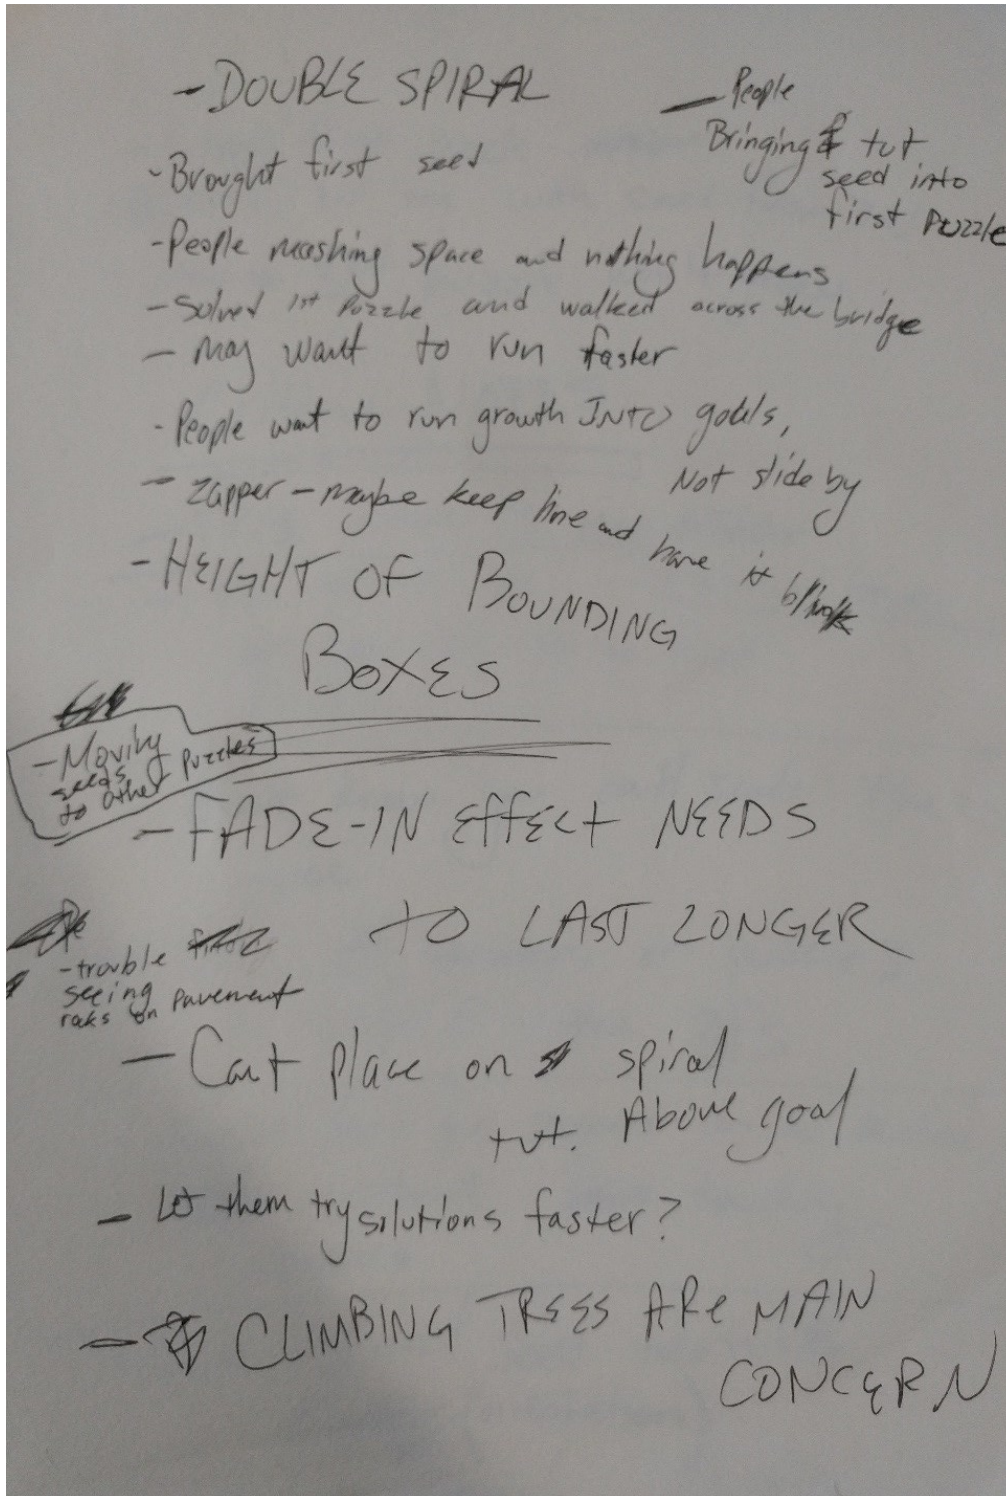 - DOUBLE SPIRAL
- People
Bringing tut
seed into
first Puzzle
- Brought first seed
- People mashing space and nothing happens
- Solved 1st Puzzle and walked across the bridge
- may want to run faster
- People want to run growth INTO goals,
Not slide by
- Zapper - maybe keep line and have it blink
- HEIGHT OF BOUNDING
BOXES
- Moving
seeds
to other Puzzles
- FADE-IN EFFECT NEEDS
TO LAST LONGER
- trouble
seeing
on Pavement
- Cant place on spiral
tut. Above goal
- Let them try solutions faster?
- CLIMBING TREES ARE MAIN
CONCERN